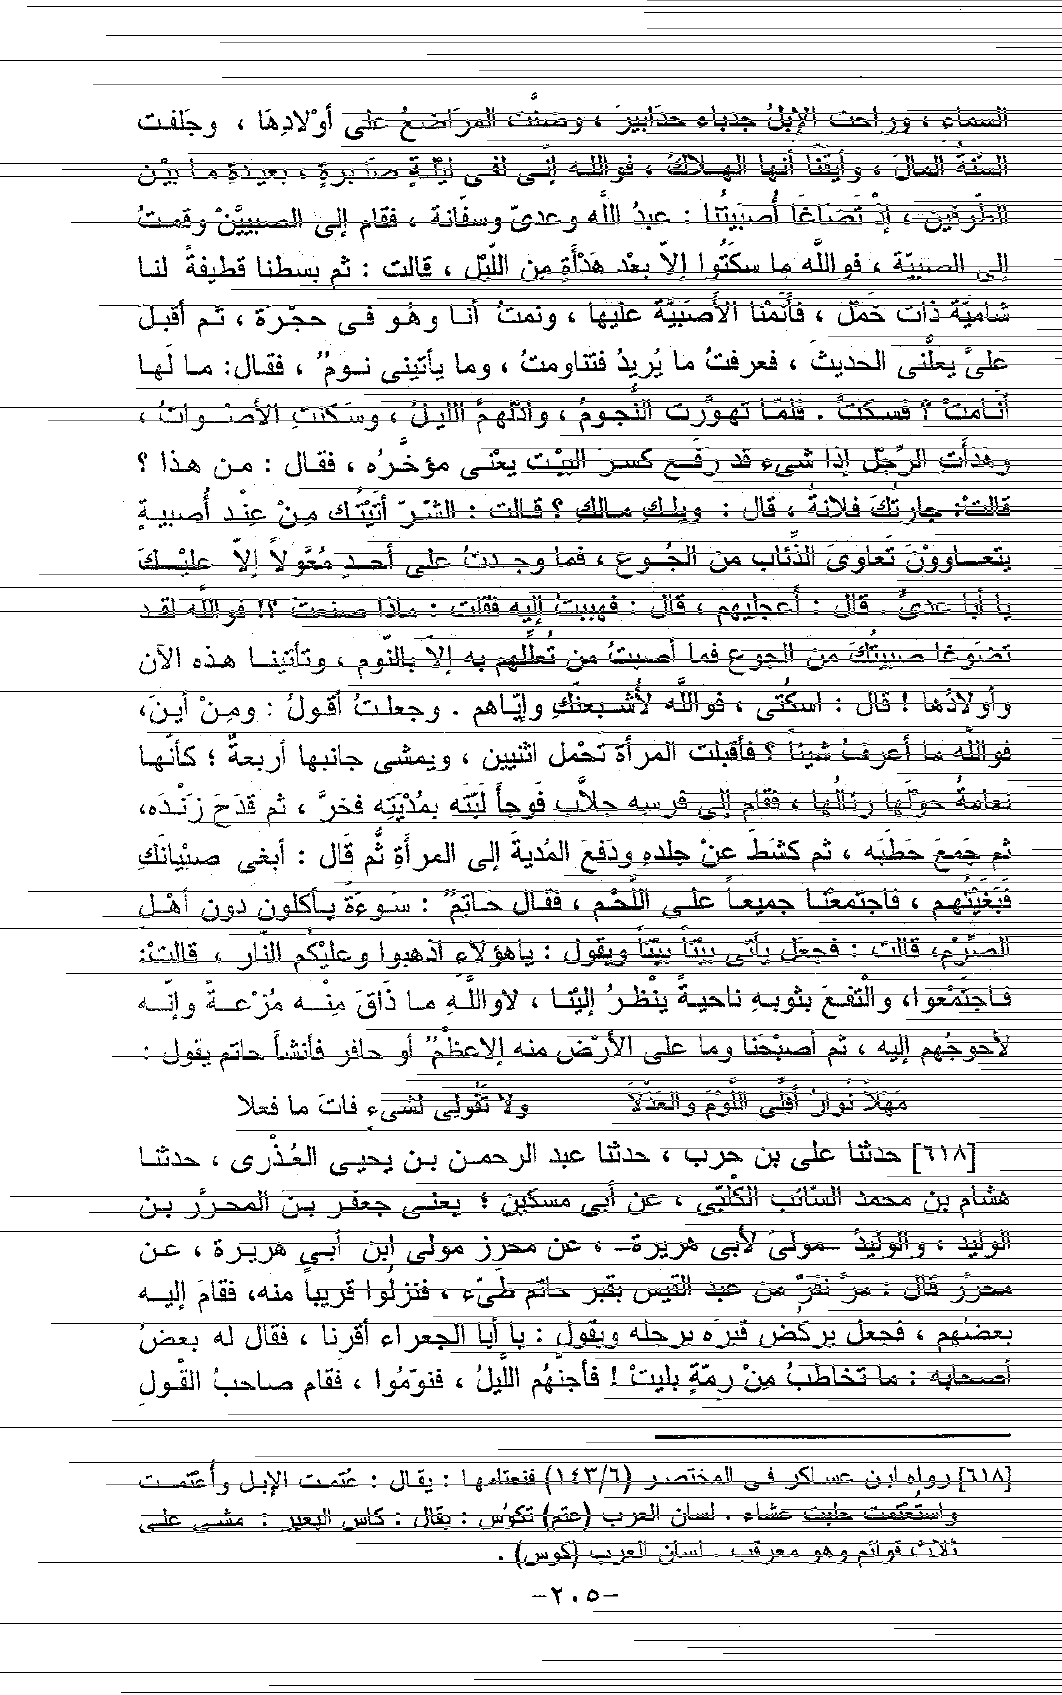 السماء ، وراحت الإبلُ جدباء حدَابيرَ ، وضنَّت المرَاضعُ على أوْلادِهَا ، وجَلفت
السَّنَةُ المالَ ، وأيقَنَّا أنها الهـلاكُ ، فواللـه إنِّى لفى ليْلَـةٍ صنَّبرةٍ ، بعيدةِ مـا بيْـن
الطَّرفين ، إذْ تَضَاغَا أُصْبَيتُنَا : عبدُ اللَّه وعدىّ وسفَّانة ، فقام إلى الصبييَّنْ وقمـتُ
إلى الصبيّة ، فواللَّه ما سكَتُوا إلاّ بعْد هَدْأَةٍ مِن اللَّيْل ، قالت : ثم بسطنا قطيفةً لنـا
شاميّة ذات خَمْل ، فأنَمْنا الأُصَبْيَّة عليها ، ونمتُ أنـا وهُو فـى حجْـرة ، ثـم أقبـل
علىَّ يعلّنى الحديث ، فعرفتُ ما يُريدُ فتناومتُ ، وما يأتينى نـومٌ ، فقـال: مـا لَهـا
أنَـامتْ ؟ فسكتُ . فلمّـا تهـوَّرت النُّجـومُ ، وادْلَهمَّ الليـلُ ، وسَـكنتِ الأصْـواتُ ،
وهدَأَت الرِّجْل إذا شىء قد رفَـع كسـرَ البيْـت يعْنـى مؤخـرُه ، فقـال : مـن هـذا ؟
قالتْ: جارتُكَ فلانةُ ، قال : ويلـكِ مـالكِ ؟ قـالت : الشّـرّ أتيْتُـك مِـنْ عنْـد أُصبيـة
يتعـاوونْ تَعاوىَ الذِّئاب من الجُـوع ، فما وجـدتُ على أحـدٍ مُعْوَّلاً إلاّ عليْـكَ
يا أبا عدىٍّ . قال : أعجليهم ، قال : فهببتُ إليه فقلت : ماذا صنعتَ ؟! فواللَّه لقـد
تضوغا صبيتُكَ من الجوع فما أصبتُ من تُعلِّلهم به إلاّ بالنّوم ، وتأتينـا هذه الآن
وأولادُها ! قال : اسكُتى ، فواللَّه لأُشـبعنَّكِ وإيّـاهم . وجعلتُ أقولُ : ومِـنْ أيـنَ،
فواللَّه ما أعرفُ شيئاً ؟ فأقبلت المرأة تحْمل اثنيين ، ويمشى جانبها أربعةٌ ؛ كأنّهـا
نعامةُ حوْلَها رِئالُها ، فقام إلى فرسِه جلاَّب فَوجأَ لبَتَه بمُدْيتِه فخرَّ ، ثم قَدَحَ زنْـدَه،
ثم جَمعَ حَطَبَه ، ثم كشَطَ عنْ جلدهِ ودَفَعَ المُديةَ إلى المرأةِ ثُم قَال : أبغى صبْيَانَكِ
فَبَغَيَتْهُم ، فاجتمعْنَا جميعـاً علـى اللَّحْـم ، فقـال حـاتِمٌ : سَـوءَةً يـأكلون دون أهْـل
الصِّرْم، قالت : فجعَل يأتى بيْتاً بيْتاً ويقول : ياهؤلاءِ اذهبوا وعليْكُم النَّار ، قالتْ:
فـاجتَمْعوا، والْتفـعَ بثوبـهِ ناحيـةً ينْظـرُ إليْنَـا ، لاواللَّـهِ مـا ذَاقَ مِنْـه مُزْعـةً وإنّـه
لأحوجُهم إليه ، ثم أصبْحَنا وما على الأرْض منه إلاعظْمٌ أو حافر فأنشأ حاتم يقول :
مَهْلاً نَوارُ أَقلِّى اللَّوْمَ والعَذْلاَ ولا تَقُولِى لشىء فَاتَ ما فعلا
[٦١٨] حدثنا على بن حرب ، حدثنا عبد الرحمـن بـن يحيـى العُـذْرى ، حدثنـا
هشام بن محمد السّائب الكَلْبّى ، عن أبي مسكين ؛ يعنـى جعفـر بـن المحـرَّر بـن
الوليد ، والوليدَ –مولىَ لأبى هريرة– ، عن محرز مولى ابن أبـي هريـرة ، عـن
محرزٍ قال : مرّ نفَرٌ من عبد القيْس بقبر حاتم طيّىء ، فنزلُوا قريباً منه، فقامَ إليـه
بعضُهم ، فجعل يركُض قبْرَه برجله ويقولُ : يا أبا الجعراء أقرنا ، فقال له بعضُ
أصحابِه : ما تخاطبُ مِنْ رِمّةٍ بليتْ ! فأجنَهُم اللَّيلُ ، فنوّمُوا ، فقام صاحبُ القوْل
[٦١٨] رواه ابن عساكر فى المختصر (١٤٣/٦) فنعتامها : يقال : عُتمت الإبل وأعْتمت
واستعْتَمت حلبت عشاء . لسان العرب (عتم) تكوُس : يقال : كاس البعير : مشى على
ثلاث قوائم وهو معرقب . لسان العرب (كوس) .
–٢٠٥–